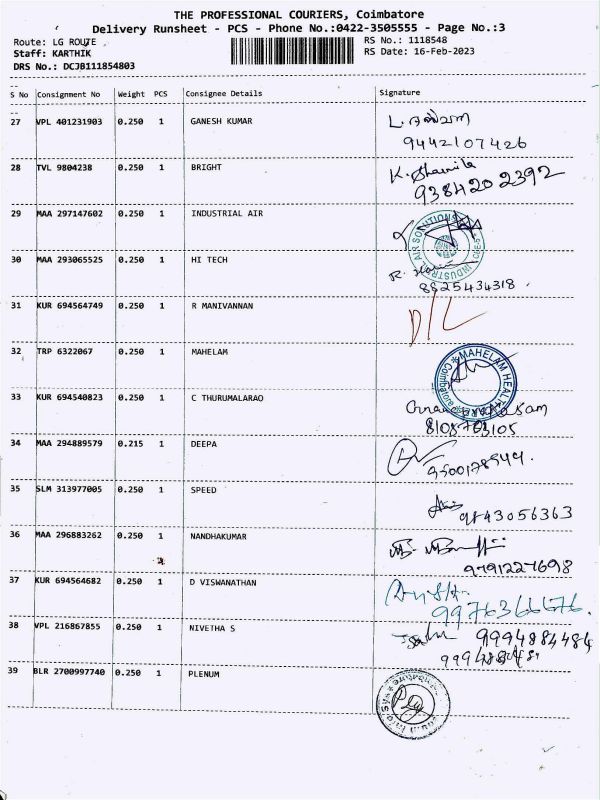 THE PROFESSIONAL COURIERS, Coimbatore
Delivery Runsheet - PCS - Phone No.:0422-3505555 - Page No.:3
Route: LG ROUTE RS No.: 1118548
Staff: KARTHIK RS Date: 16-Feb-2023
DRS No.: DCJB111854803
S No Consignment No Weight PCS Consignee Details Signature
27 VPL 401231903 0.250 1 GANESH KUMAR
9442107426
28 TVL 9804238 0.250 1 BRIGHT K. Sharmila
9384202392
29 MAA 297147602 0.250 1 INDUSTRIAL AIR
INDUSTRIAL AIR SOLUTIONS
30 MAA 293065525 0.250 1 HI TECH
8825434318
31 KUR 694564749 0.250 1 R MANIVANNAN D/L
32 TRP 6322067 0.250 1 MAHELAM
MAHELAM HEALTHCARE
Coimbatore
33 KUR 694540823 0.250 1 C THURUMALARAO
34 MAA 294889579 0.215 1 DEEPA
35 SLM 313977005 0.250 1 SPEED
9843056363
36 MAA 296883262 0.250 1 NANDHAKUMAR
2
9791227698
37 KUR 694564682 0.250 1 D VISWANATHAN
9976366676.
38 VPL 216867855 0.250 1 NIVETHA S 9994884484
39 BLR 2700997740 0.250 1 PLENUM